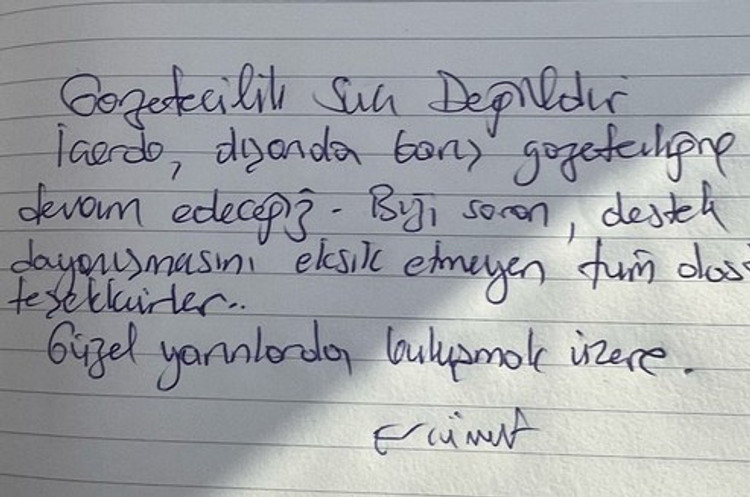 Gazetecilik Suç Değildir
İçerde, dışarıda barış gazeteciliğine
devam edeceğiz. Bizi soran, destek
dayanışmasını eksik etmeyen tüm dos
teşekkürler..
Güzel yarınlarda buluşmak üzere.